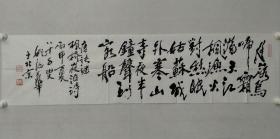 月落烏
啼霜
滿天江
楓漁火
對愁眠
姑蘇城
外寒山
寺夜半
鐘聲到
客船
唐張繼
楓橋夜泊詩
丙申夏
姚治華
於北京